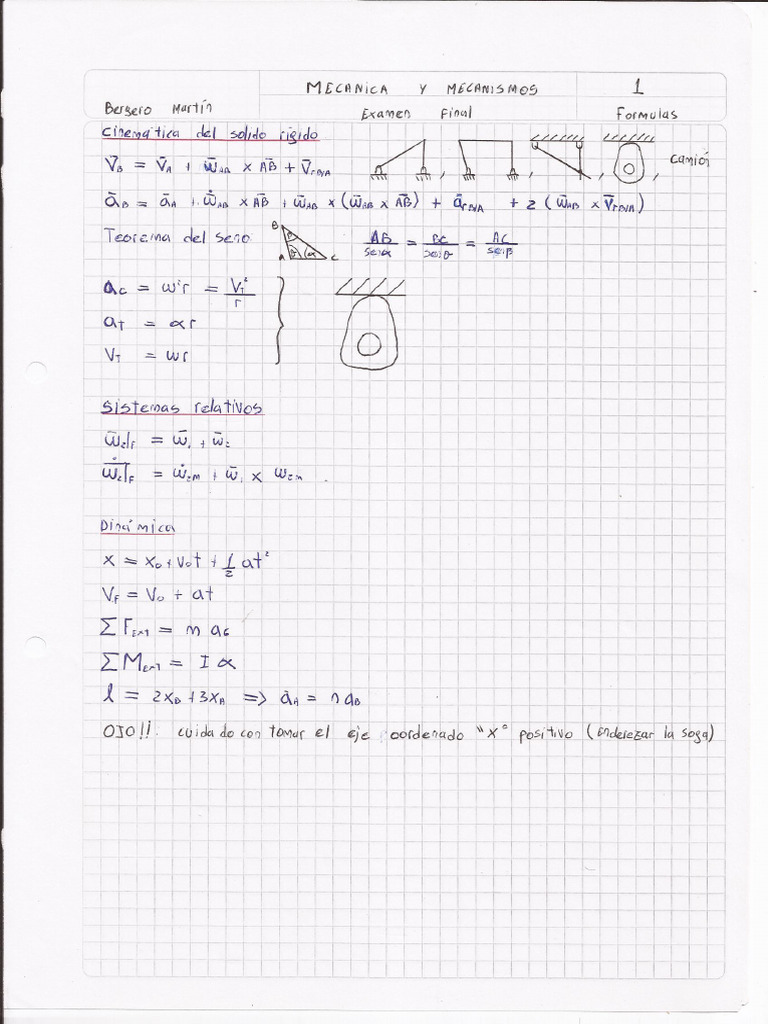 MECANICA Y MECANISMOS 1
Bergero Martín Examen Final Formulas
Cinemática del solido rigido
V̄B = V̄A + ω̄AB × AB̄ + V̄rB/A , , , , Camión
āB = āA + ω̄̇AB × AB̄ + ω̄AB × (ω̄AB × AB̄) + ārB/A + 2 (ω̄AB × V̄rB/A)
Teorema del seno B A C θ α β AB/senα = BC/senθ = AC/senβ
aC = ω²r = VT²/r
aT = αr
VT = ωr
Sistemas relativos
ω̄2|F = ω̄1 + ω̄2
ω̄̇2|F = ω̇2m + ω̄1 × ω2m
Dinámica
X = X0 + V0t + 1/2 at²
VF = V0 + at
∑FExt = m aG
∑MExt = I α
l = 2XB + 3XA => āA = n aB
OJO!!. cuidado con tomar el eje coordenado "X" positivo (enderezar la soga)